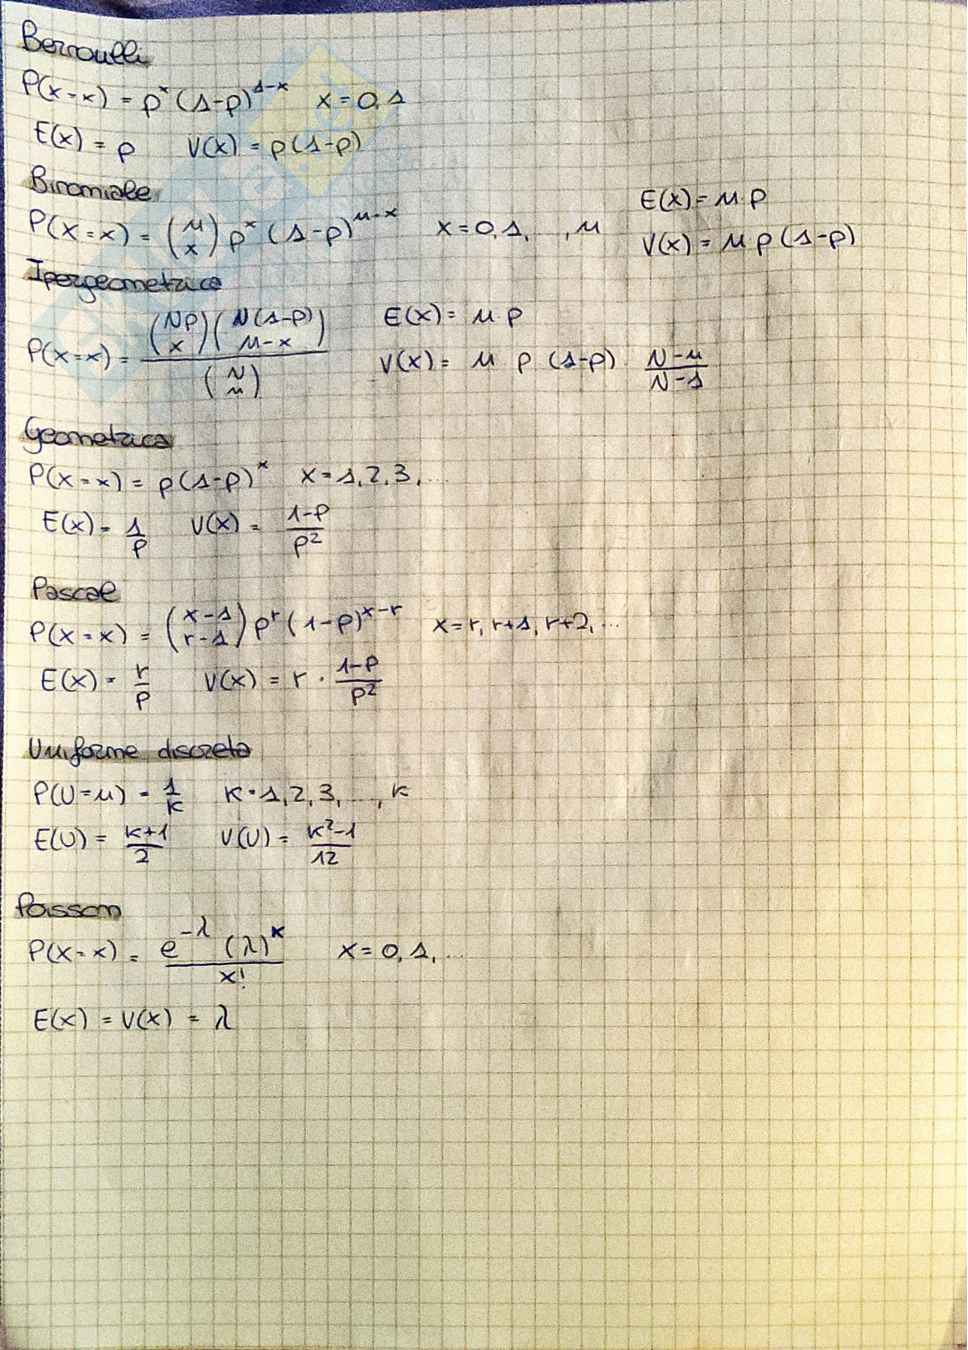 Bernoulli
P(X=x) = p^x (1-p)^{1-x}   x = 0, 1
E(x) = p   V(x) = p(1-p)
Binomiale
P(X=x) = \binom{n}{x} p^x (1-p)^{n-x}   x = 0, 1, ..., n   E(x) = n p   V(x) = n p (1-p)
Ipergeometrica
P(X=x) = \frac{\binom{Np}{x} \binom{N(1-p)}{n-x}}{\binom{N}{n}}   E(x) = n p   V(x) = n p (1-p) \frac{N-n}{N-1}
Geometrica
P(X=x) = p(1-p)^x   x = 1, 2, 3, ...
E(x) = \frac{1}{p}   V(x) = \frac{1-p}{p^2}
Pascal
P(X=x) = \binom{x-1}{r-1} p^r (1-p)^{x-r}   x = r, r+1, r+2, ...
E(x) = \frac{r}{p}   V(x) = r · \frac{1-p}{p^2}
Uniforme discreta
P(U=u) = \frac{1}{k}   k = 1, 2, 3, ..., k
E(U) = \frac{k+1}{2}   V(U) = \frac{k^2-1}{12}
Poisson
P(X=x) = \frac{e^{-λ} (λ)^x}{x!}   x = 0, 1, ...
E(x) = V(x) = λ